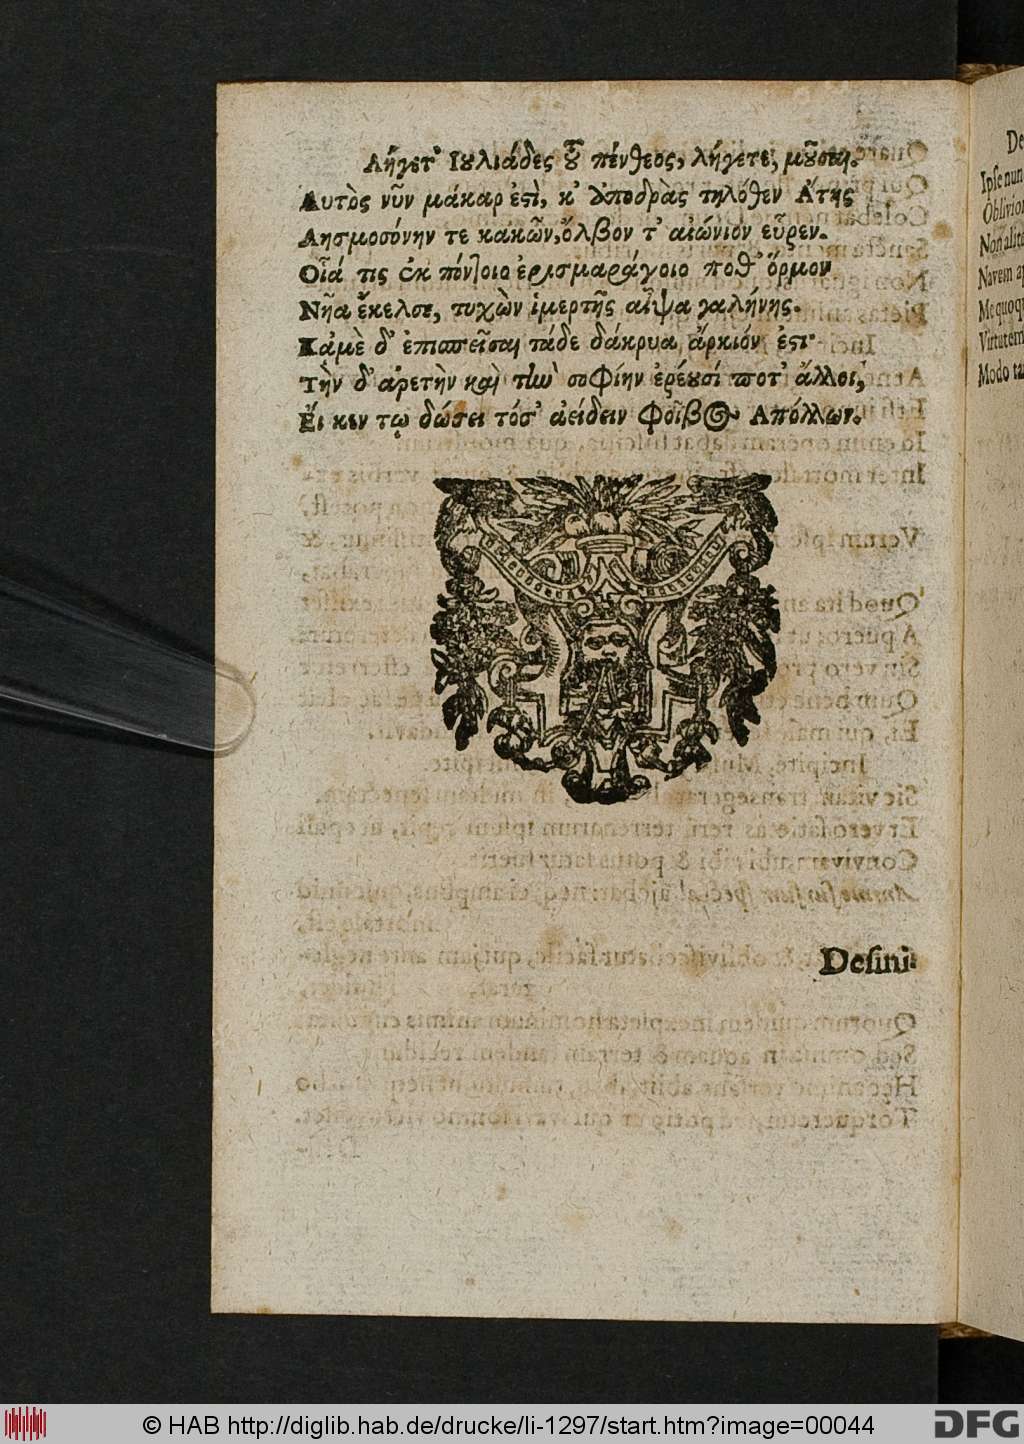 Λήγετ' Ιουλιάδες τοῦ πένθεος, λήγετε, μοῦσαι.
Αυτὸς νῦν μάκαρ ἐστὶ, κ' ἀποδρὰς τηλόθεν Ἄτης
Λησμοσύνην τε κακῶν, ὄλβον τ' αἰώνιον εὗρεν.
Οἷά τις ἐκ πόντοιο ἐρισμαράγοιο ποθ' ὅρμον
Νῆα ἔκελσε, τυχὼν ἱμερτῆς αἶψα γαλήνης.
Κἀμὲ δ' ἐπισπεῖσαι τάδε δάκρυα ἄρκιόν ἐστι·
Τὴν δ' ἀρετὴν καὶ τὴν σοφίην ἐρέουσί ποτ' ἄλλοι,
Εἴ κεν τῳ δώσει τόσ' ἀείδειν Φοῖβος Απόλλων.
Desini-
De
Ipse nun
Oblivion
Non alite
Navem a
Me quoqu
Virtutem
Modo ta
© HAB http://diglib.hab.de/drucke/li-1297/start.htm?image=00044
DFG